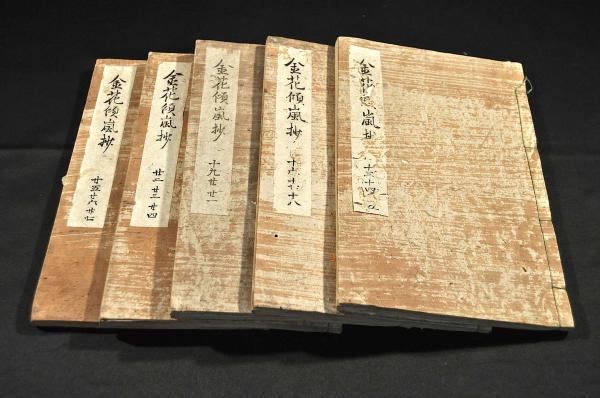 金花 嵐抄
十三十四 五
金花傾嵐抄
十六十七十八
金花傾嵐抄
十九廿廿一
金花傾嵐抄
廿二廿三廿四
金花傾嵐抄
廿五廿六廿七